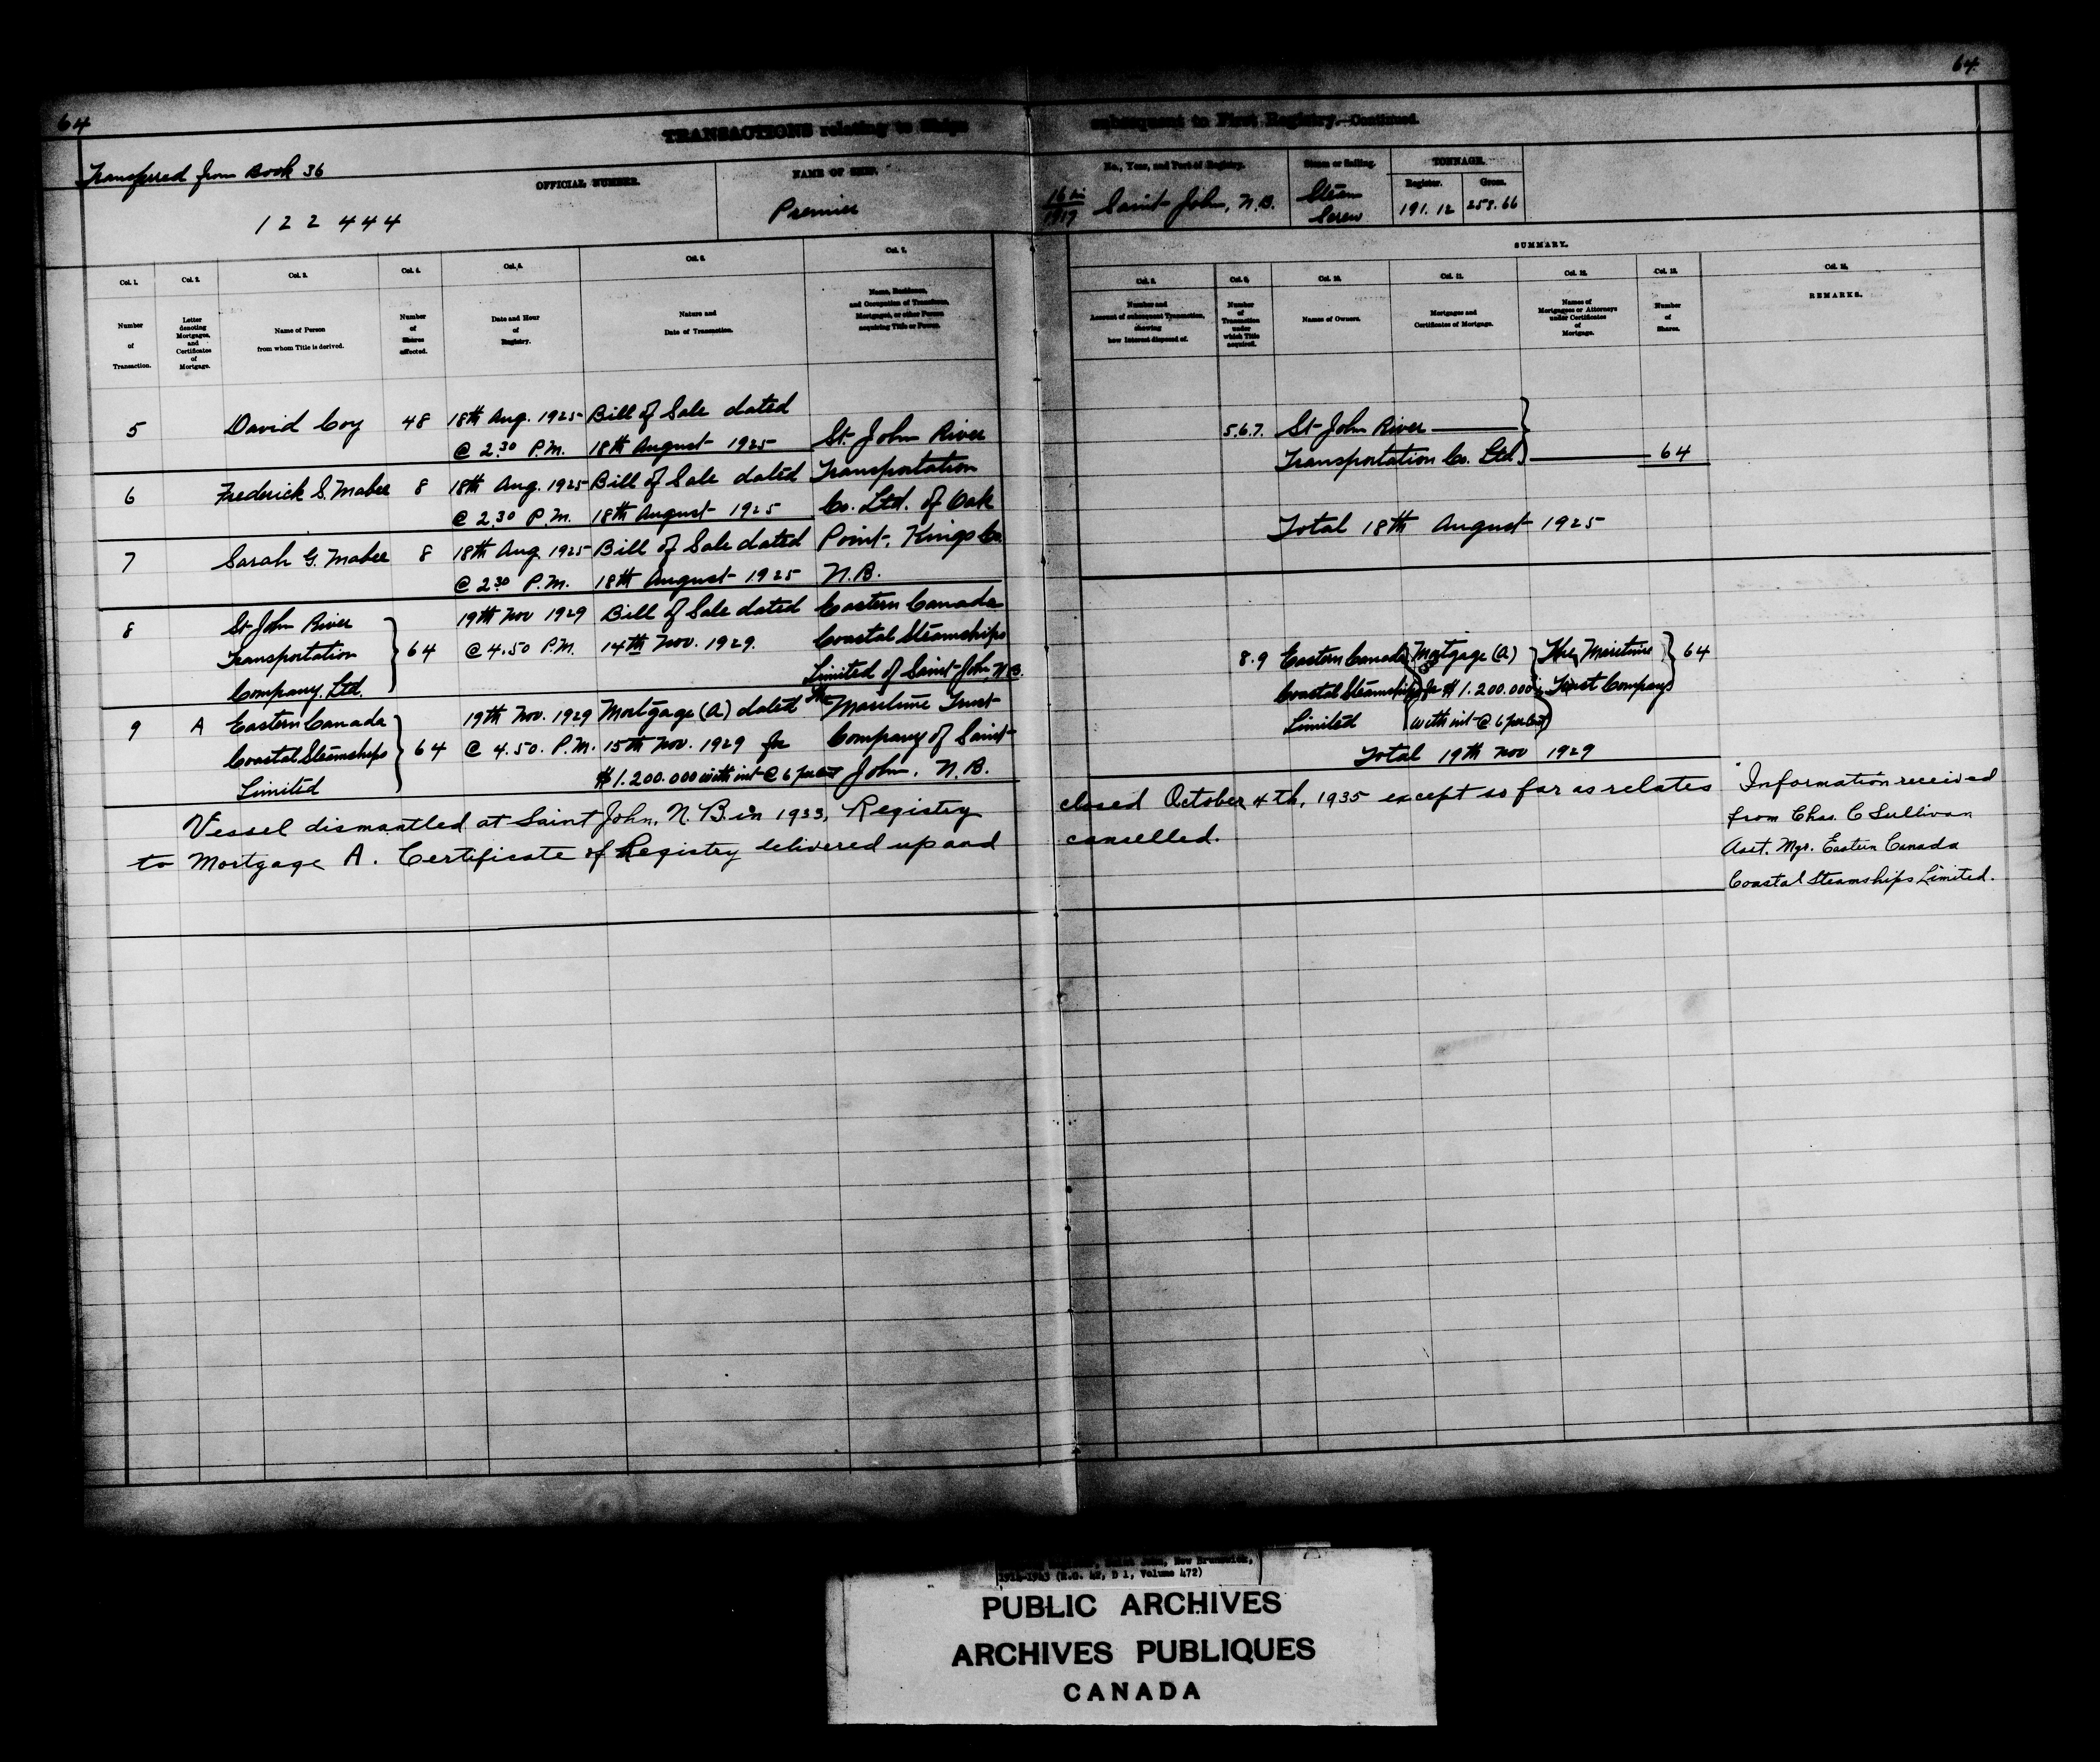 64
64
TRANSACTIONS relating to Ships subsequent to First Registry.—Continued.
Transferred from Book 36
OFFICIAL NUMBER.
122444
NAME OF SHIP.
Premier
No., Year, and Port of Registry.
Saint John, N.B.
Steam or Sailing.
Steam
Screw
TONNAGE.
Register.
Gross.
191.12
SUMMARY.
Col. 1.
Number
of
Transaction.
Col. 2.
Letter
denoting
Mortgages,
and
Certificates
of
Mortgage.
Col. 3.
Name of Person
from whom Title is derived.
Col. 4.
Number
of
Shares
affected.
Col. 5.
Date and Hour
of
Registry.
Col. 6.
Nature and
Date of Transaction.
Col. 7.
Name, Residence,
and Occupation of Transferee,
Mortgagee, or other Person
acquiring Title or Power.
Col. 8.
Number and
Account of subsequent Transaction,
showing
how Interest disposed of.
Col. 9.
Number
of
Transaction
under
which Title
acquired.
Col. 10.
Names of Owners.
Col. 11.
Mortgages and
Certificates of Mortgage.
Col. 12.
Names of
Mortgagees or Attorneys
under Certificates
of
Mortgage.
Col. 13.
Number
of
Shares.
Col. 14.
REMARKS.
5 David Coy 48 18th Aug. 1925 Bill of Sale dated
@ 2.30 P.M. 18th August 1925 St. John River
6 Frederick S. Mabee 8 18th Aug. 1925 Bill of Sale dated Transportation
@ 2.30 P.M. 18th August 1925 Co. Ltd. of Oak
7 Sarah G. Mabee 8 18th Aug 1925 Bill of Sale dated Point, Kings Co.
@ 2.30 P.M. 18th August 1925 N.B.
8 St John River 19th Nov 1929 Bill of Sale dated Eastern Canada
Transportation 64 @ 4.50 P.M. 14th Nov. 1929. Coastal Steamships
Company, Ltd. Limited of Saint John, N.B.
9 A Eastern Canada 19th Nov. 1929 Mortgage (A) dated The Maritime Trust
Coastal Steamships 64 @ 4.50. P.M. 15th Nov. 1929 for Company of Saint
Limited $1.200.000 with int @ 6 per cent John, N.B.
5.6.7. St John River
Transportation Co. Ltd. 64
Total 18th August 1925
8.9 Eastern Canada Mortgage (A) The Maritime 64
Coastal Steamships for $1.200.000 Trust Company
Limited with int @ 6 per cent
Total 19th Nov 1929
Vessel dismantled at Saint John, N.B. in 1933, Registry closed October 4th, 1935 except so far as relates
to Mortgage A. Certificate of Registry delivered up and cancelled.
Information received
from Chas. C Sullivan
Asst. Mgr. Eastern Canada
Coastal Steamships Limited.
Saint John, New Brunswick,
(R.G. 42, D 1, Volume 472)
PUBLIC ARCHIVES
ARCHIVES PUBLIQUES
CANADA